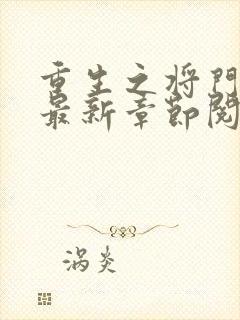 重生之将门
最新章节阅
涡炎